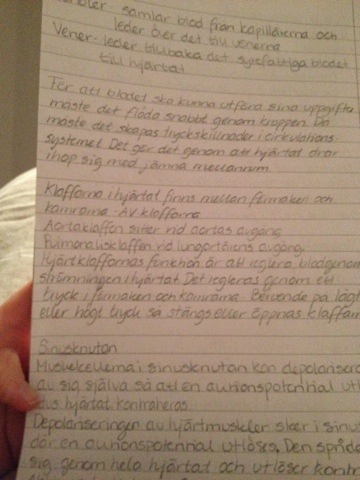 samlar blod från kapillärerna och
leder över det till venerna
Vener - leder tillbaka det syrefattiga blodet
till hjärtat
För att blodet ska kunna utföra sina uppgifter
måste det flöda snabbt genom kroppen. Då
måste det skapas tryckskillnader i cirkulations
systemet. Det gör det genom att hjärtat drar
ihop sig med jämna mellanrum.
Klaffarna i hjärtat finns mellan förmaken och
kamrarna. AV klaffarna
Aortaklaffen sitter vid aortas avgång
Pulmonalisklaffen vid lungartärens avgång.
Hjärtklaffarnas funktion är att reglera blodgenom
strömningen i hjärtat. Det regleras genom ett
tryck i förmaken och kamrarna. Beroende på lågt
eller högt tryck så stängs eller öppnas klaffarn
Sinusknutan
Muskelcellerna i sinusknutan kan depolarisera
av sig själva så att en aktionspotential utl
hjärtat kontraheras.
Depolariseringen av hjärtmuskeler sker i sinus
där en aktionspotential utlöses. Den sprids
sig genom hela hjärtat och utlöser kontr